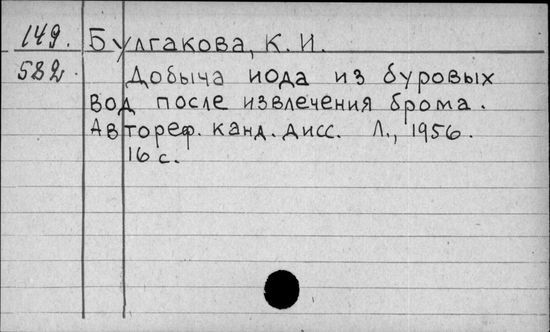 149. Булгакова, К. И.
582. Добыча иода из буровых
вод после извлечения брома.
Автореф. канд. дисс. Л., 1956.
16 с.